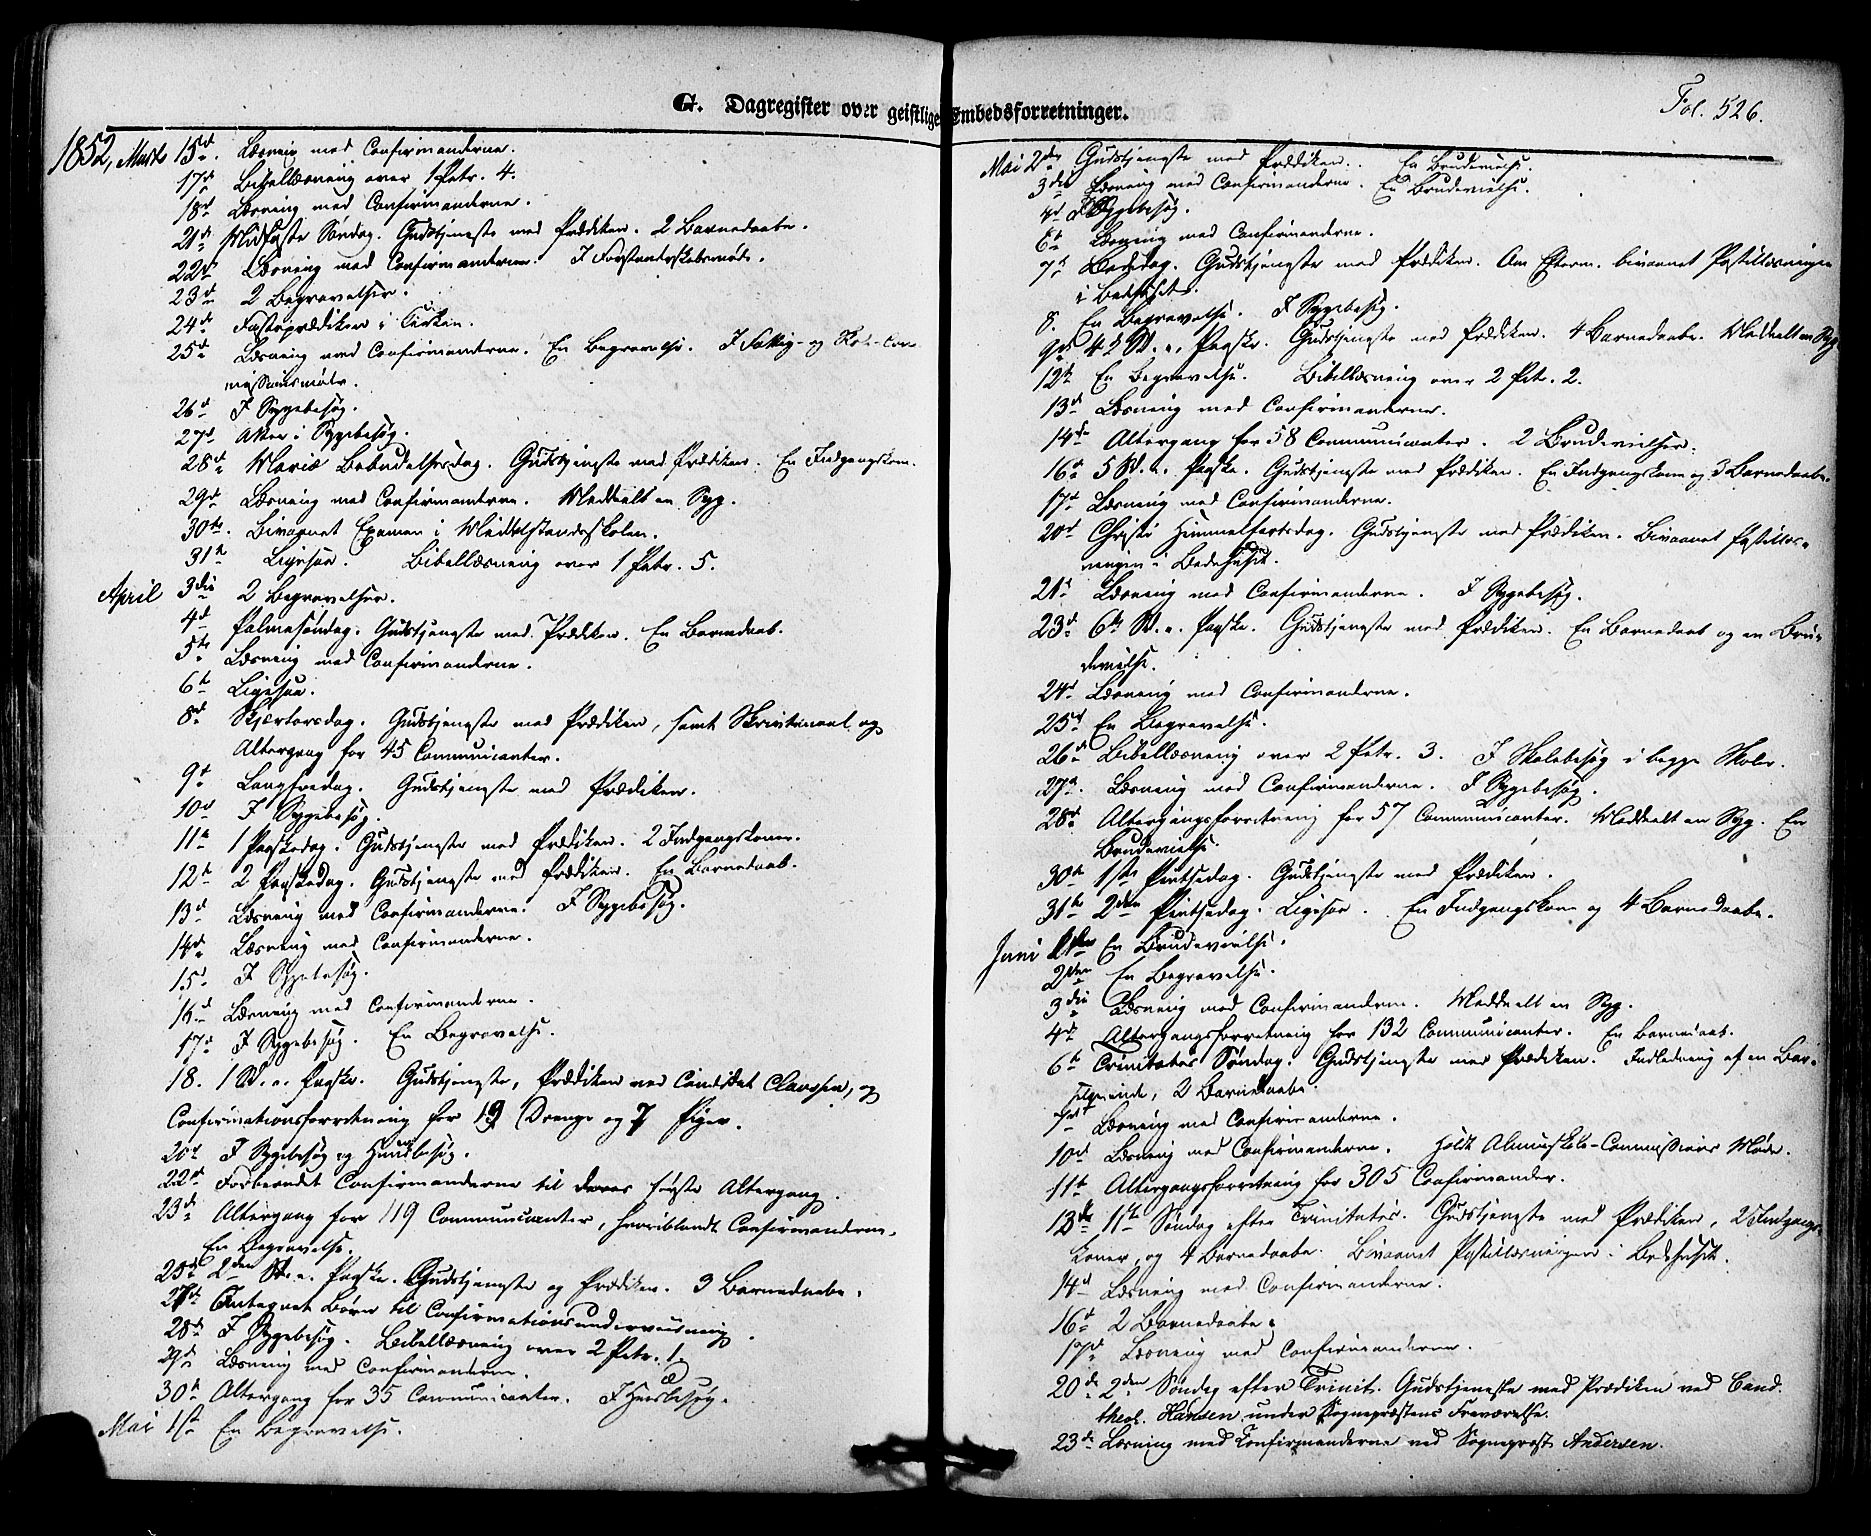 G. Dagregister over geistlige Embedsforretninger.
Fol. 526.
1852, Marts 15d. Læsning med Confirmanderne.
17d Bibellæsning over 1 Petr. 4.
18d Læsning med Confirmanderne.
21de Midfaste Søndag. Gudstjeneste med Prædiken. 2 Barnedaabe.
22d Læsning med Confirmanderne. I Forstanderskabsmøde.
23d 2 Begravelser.
24de Fasteprædiken i Kirken.
25de Læsning med Confirmanderne. En Begravelse. I Fattig- og Com-
missionsmøte.
26d I Sygebesøg.
27d Atter i Sygebesøg.
28de Mariæ Bebudelsesdag. Gudstjeneste med Prædiken. En Indgangskone.
29d Læsning med Confirmanderne. Meddeelt en Syg.
30te. Bivaanet Examen i Middelstandsskolen.
31te Ligesaa. Bibellæsning over 1 Petr. 5.
April 3die 2 Begravelser.
4d Palmesøndag. Gudstjeneste med Prædiken. En Barnedaab.
5te Læsning med Confirmanderne.
6te Ligesaa.
8de Skjærtorsdag. Gudstjeneste med Prædiken, samt Skriftemaal og
Altergang for 45 Communicanter.
9d Langfredag. Gudstjeneste med Prædiken.
10d I Sygebesøg.
11te 1 Paaskedag. Gudstjeneste med Prædiken. 2 Indgangskoner.
12te 2 Paaskedag. Gudstjeneste med Prædiken. En Barnedaab.
13d Læsning med Confirmanderne. I Sygebesøg.
14d Læsning med Confirmanderne.
15d I Sygebesøg.
16d Læsning med Confirmanderne.
17d I Sygebesøg. En Begravelse.
18. 1 S. e. Paaske. Gudstjeneste, Prædiken ved Candidat Clausen, og
Confirmationsforretning for 19 Drenge og 7 Piger.
20d I Sygebesøg og Huusbesøg.
22d Forberedet Confirmanderne til deres første Altergang.
23de Altergang for 119 Communicanter, hvoriblandt Confirmanderne.
En Begravelse.
25de 2den S. e. Paaske. Gudstjeneste og Prædiken. 3 Barnedaabe.
27de Antegnet Børn til Confirmationsunderviisning.
28de I Sygebesøg. Bibellæsning over 2 Petr. 1.
29d Læsning med Confirmanderne.
30te Altergang for 35 Communicanter. I Huusbesøg.
Mai 1ste En Begravelse.
Mai 2den Gudstjeneste med Prædiken. En Brudevielse.
3die Læsning med Confirmanderne. En Brudevielse.
4d I Sygebesøg.
6te Læsning med Confirmanderne.
7de Bededag. Gudstjeneste med Prædiken. Om Efterm. bivaanet Postillæsningen
i Bedehuset.
8. En Begravelse. I Sygebesøg.
9de 4 S. e. Paaske. Gudstjeneste med Prædiken. 4 Barnedaabe. Meddeelt en Syg.
12te En Begravelse. Bibellæsning over 2 Petr. 2.
13d Læsning med Confirmanderne.
14de Altergang for 58 Communicanter. 2 Brudevielser.
16de 5 S. e. Paaske. Gudstjeneste med Prædiken. En Indgangskone og 3 Barnedaabe.
17d Læsning med Confirmanderne.
20d Christi Himmelfartsdag. Gudstjeneste med Prædiken. Bivaanet Postillæs-
ningen i Bedehuset.
21d Læsning med Confirmanderne. I Sygebesøg.
23d 6te S. e. Paaske. Gudstjeneste med Prædiken. En Barnedaab og en Bru-
devielse.
24d Læsning med Confirmanderne.
25d En Begravelse.
26d Bibellæsning over 2 Petr. 3. I Skolebesøg i begge Skoler.
27d. Læsning med Confirmanderne. I Sygebesøg.
28d Altergangsforretning for 57 Communicanter. Meddeelt en Syg. En
Brudevielse.
30te 1ste Pintsedag. Gudstjeneste med Prædiken.
31te 2den Pintsedag. Ligesaa. En Indgangskone og 4 Barnedaabe.
Juni 1ste En Brudevielse.
2den En Begravelse.
3die Læsning med Confirmanderne. Meddeelt en Syg.
4de Altergangsforretning for 132 Communicanter. En Barnedaab.
6te Trinitatis Søndag. Gudstjeneste med Prædiken. Indledning af en Bar-
selqvinde, 2 Barnedaabe.
7de Læsning med Confirmanderne.
10d Læsning med Confirmanderne. Holdt Almueskole-Commissions Møde.
11te Altergangsforretning for 305 Confirmander.
13de 1ste Søndag efter Trinitatis. Gudstjeneste med Prædiken, 2 Indgangs-
koner og 4 Barnedaabe. Bivaanet Postillæsningen i Bedehuset.
14d Læsning med Confirmanderne.
16d 2 Barnedaabe.
17d Læsning med Confirmanderne.
20de 2den Søndag efter Trinit. Gudstjeneste med Prædiken ved Cand.
theol. Hansen under Sognepræstens Fraværelse.
23de Læsning med Confirmanderne ved Sognepræst Andersen.